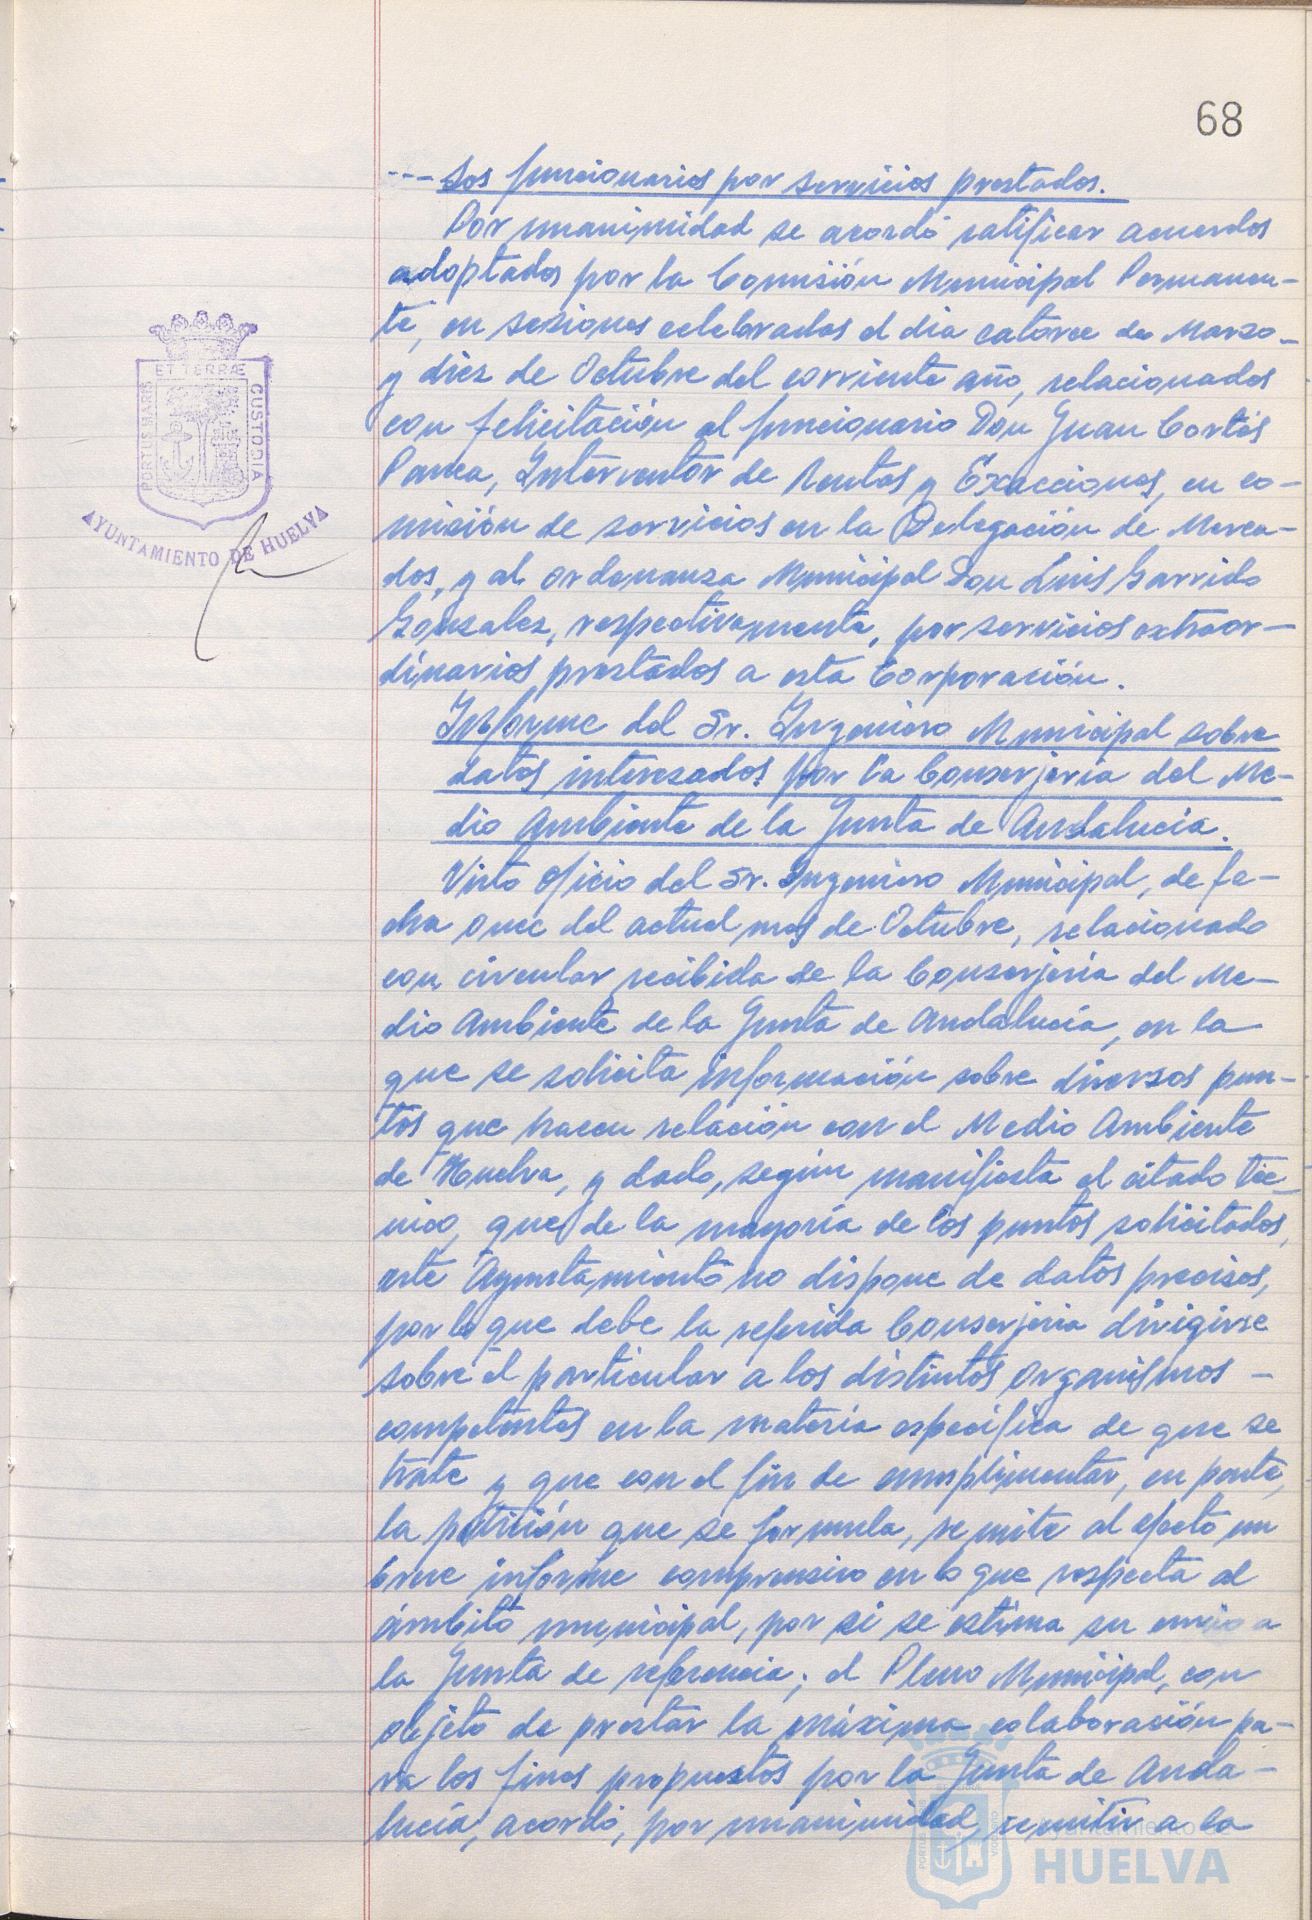 68
--- los funcionarios por servicios prestados.
Por unanimidad se acordó ratificar acuerdos
adoptados por la Comisión Municipal Permanen-
te, en sesiones celebradas el día catorce de Marzo
y diez de Octubre del corriente año, relacionados
con felicitación al funcionario Don Juan Cortés
Interventor de Rentas y Exacciones, en co-
misión de servicios en la Delegación de Merca-
dos, y al ordenanza Municipal Don Luis Garrido
Gonzalez, respectivamente, por servicios extraor-
dinarios prestados a esta Corporación.
Informe del Sr. Ingeniero Municipal sobre
datos interesados por la Conserjería del Me-
dio Ambiente de la Junta de Andalucía.
Visto oficio del Sr. Ingeniero Municipal, de fe-
cha once del actual mes de Octubre, relacionado
con circular recibida de la Conserjería del Me-
dio Ambiente de la Junta de Andalucía, en la
que se solicita información sobre diversos pun-
tos que hacen relación con el Medio Ambiente
de Huelva, y dado, según manifiesta el citado téc-
nico, que de la mayoría de los puntos solicitados,
este Ayuntamiento no dispone de datos precisos,
por lo que debe la referida Conserjería dirigirse
sobre el particular a los distintos organismos -
competentes en la materia específica de que se
trate y que con el fin de cumplimentar, en parte,
la petición que se formula, remite al efecto un
breve informe comprensivo en lo que respecta al
ámbito municipal, por si se estima su envío a
la Junta de referencia; el Pleno Municipal, con
objeto de prestar la máxima colaboración pa-
ra los fines propuestos por la Junta de Anda-
lucía, acordó, por unanimidad, remitir a la
PORTUS MARIS
ET TERRÆ
CUSTODIA
AYUNTAMIENTO DE HUELVA
Ayuntamiento de
HUELVA